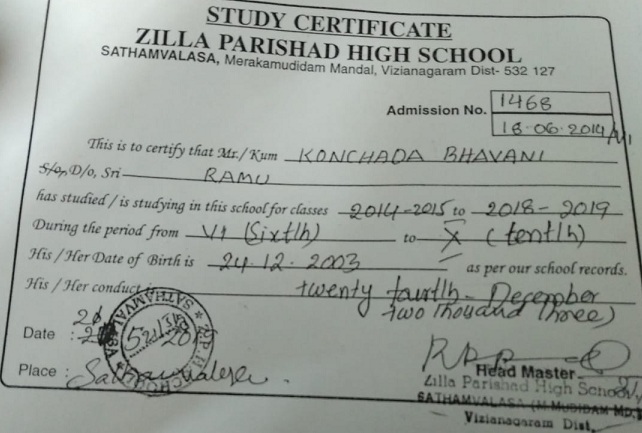 STUDY CERTIFICATE
ZILLA PARISHAD HIGH SCHOOL
SATHAMVALASA, Merakamudidam Mandal, Vizianagaram Dist- 532 127
Admission No. 1468
18-06-2014/VI
This is to certify that Mr./ Kum KONCHADA BHAVANI
S/o, D/o, Sri RAMU
has studied / is studying in this school for classes 2014-2015 to 2018-2019
During the period from VI (Sixtlh) to X (tentlh)
His / Her Date of Birth is 24-12-2003 as per our school records.
His / Her conduct is twenty fourtlh - December
two thousand three)
Date :
Place : Sathamvalasa.
Head Master
Zilla Parishad High School
SATHAMVALASA (M) MUDIDAM MD,
Vizianagaram Dist.